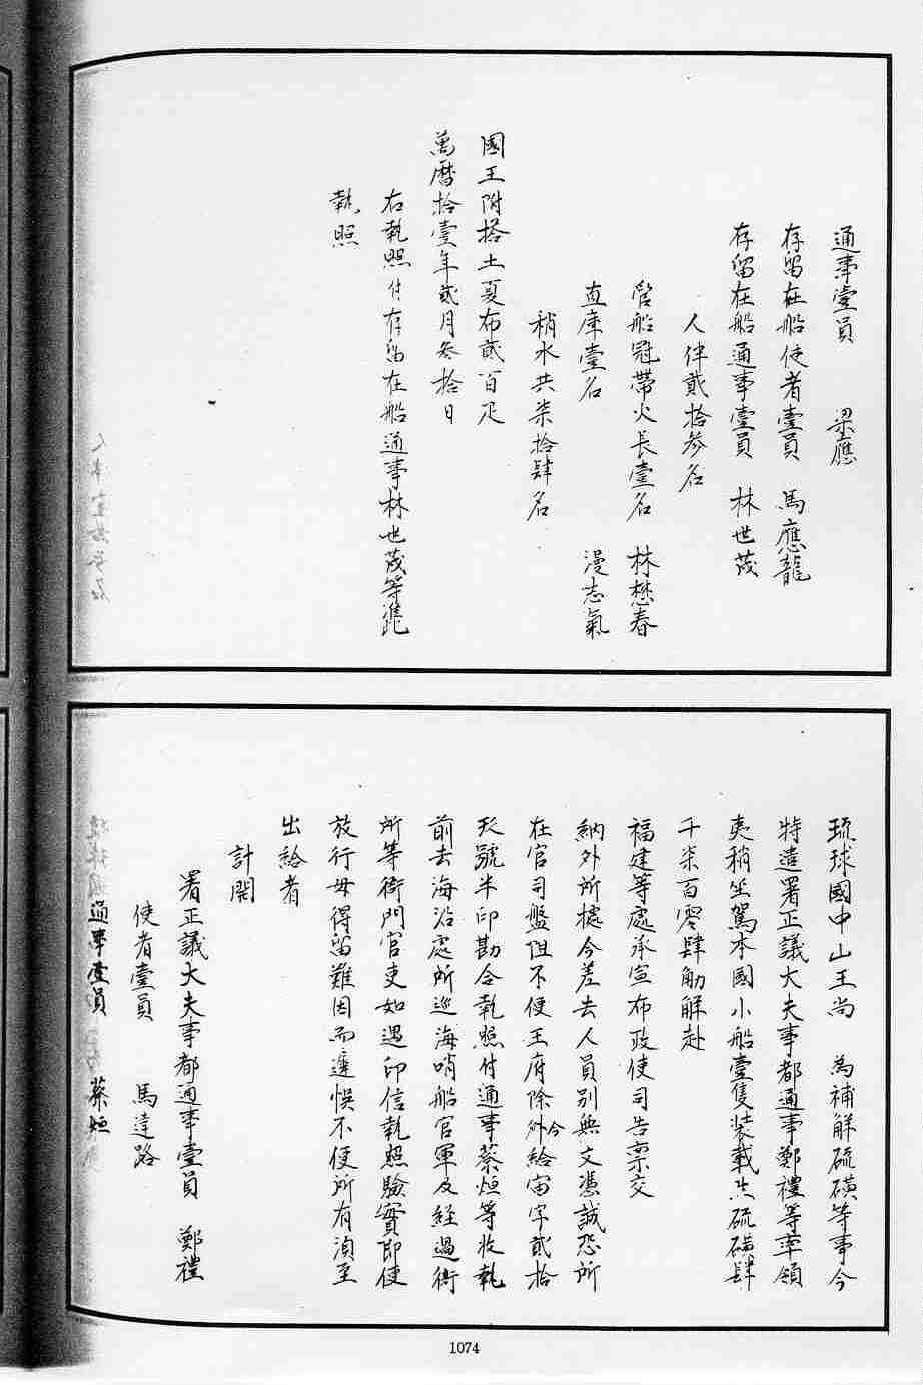 通事壹員　梁應
存留在船使者壹員　馬應龍
存留在船通事壹員　林世茂
人伴貳拾參名
管船冠帶火長壹名　林懋春
直庫壹名　漫志氣
稍水共柒拾肆名
國王附搭土夏布貳百疋
萬曆拾壹年貳月叁拾日
右執照付存留在船通事林世茂等准
執照
琉球國中山王尚　為補解硫磺等事今
特遣署正議大夫事都通事鄭禮等率領
夷稍坐駕本國小船壹隻裝載共硫磺肆
千柒百零肆觔解赴
福建等處承宣布政使司告禀交
納外所據今差去人員別無文憑誠恐所
在官司盤阻不便王府除外今給宙字貳拾
玖號半印勘合執照付通事蔡烜等收執
前去海沿處所巡海哨船官軍及經過衛
所等衙門官吏如遇印信執照驗實即便
放行毋得留難因而違悞不便所有須至
出給者
計開
署正議大夫事都通事壹員　鄭禮
使者壹員　馬達路
通事壹員　蔡烜
1074